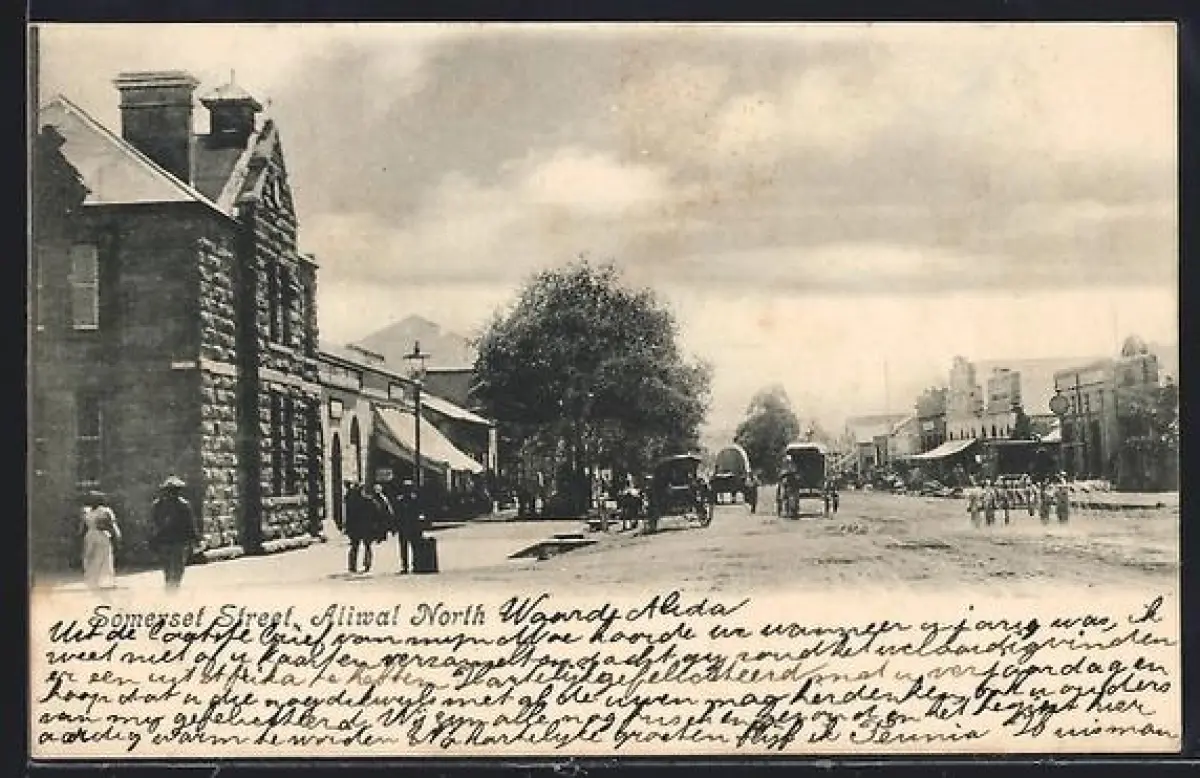 Somerset Street, Aliwal North Waarde Alida
Uit de laatste brief van mijn hoorde ik wanneer u jarig was, ik
weet niet of u kaarten verzamelt en dacht gij zoud het wel aardig vinden
er een uit Afrika te hebben Hartelijk gefeliciteerd met u verjaardag en
hoop dat u die nog dikwijls met al de uwen mag herdenken, ook u ouders
van mij gefeliciteerd. Wij zijn alle nog frisch en gezond en het begint hier
aardig warm te worden. Na hartelijke groeten blijf ik Teunia Huisman